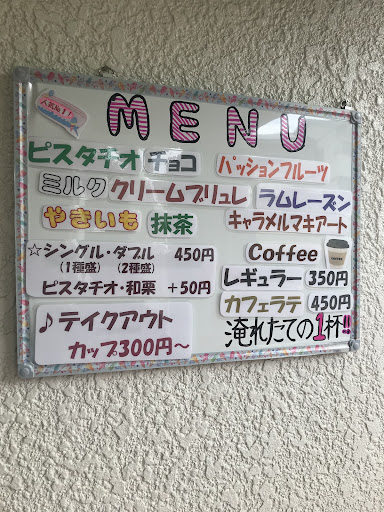 人気No.1!!
MENU
ピスタチオ チョコ パッションフルーツ
ミルク クリームブリュレ ラムレーズン
やきいも 抹茶 キャラメルマキアート
☆シングル・ダブル 450円
(1種盛) (2種盛)
ピスタチオ・和栗 +50円
Coffee
レギュラー 350円
カフェラテ 450円
淹れたての1杯!!
♪テイクアウト
カップ300円～